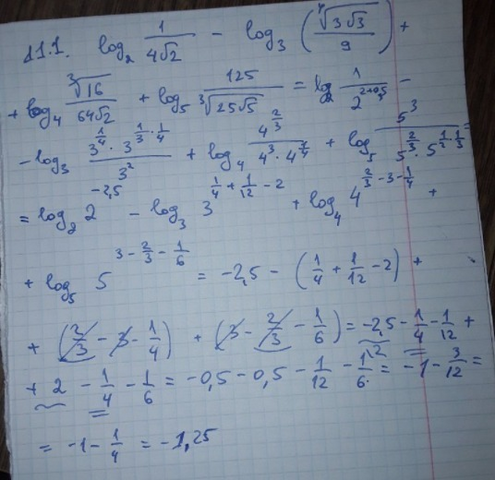 11.1. log₂ 1/(4√2) − log₃ (⁴√(3∛3)/9) +
+ log₄ ∛16/(64√2) + log₅ 125/∛(25√5) = log₂ 1/2^(2+0,5) −
− log₃ (3^(1/4) · 3^(1/3 · 1/4))/3² + log₄ 4^(2/3)/(4³ · 4^(1/4)) + log₅ 5³/(5^(2/3) · 5^(1/2 · 1/3)) =
= log₂ 2^(−2,5) − log₃ 3^(1/4 + 1/12 − 2) + log₄ 4^(2/3 − 3 − 1/4) +
+ log₅ 5^(3 − 2/3 − 1/6) = −2,5 − (1/4 + 1/12 − 2) +
+ (2/3 − 3 − 1/4) + (3 − 2/3 − 1/6) = −2,5 − 1/4 − 1/12 +
+ 2 − 1/4 − 1/6 = −0,5 − 0,5 − 1/12 − 1/6 = −1 − 3/12 =
= −1 − 1/4 = −1,25